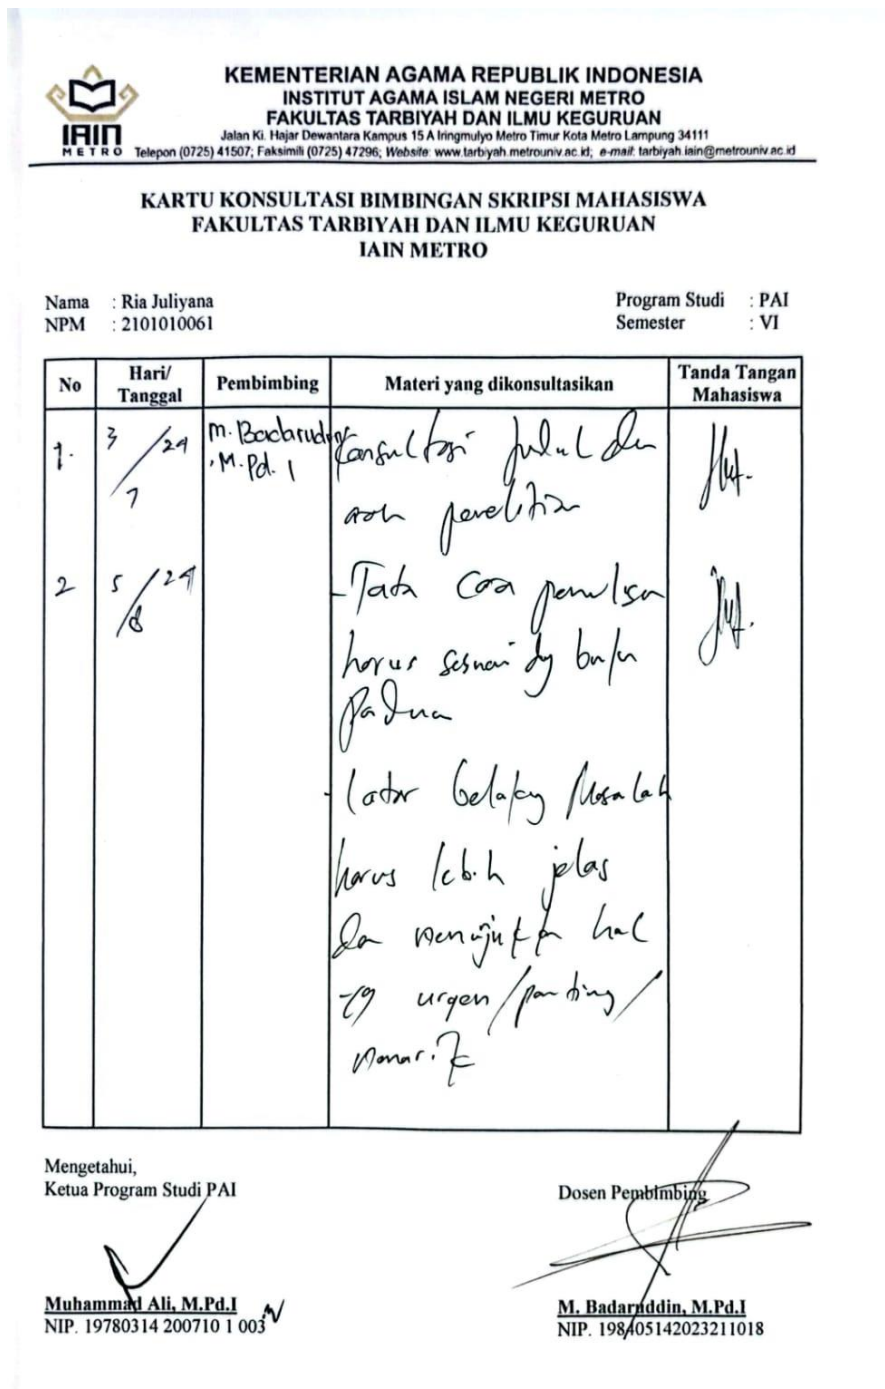 KEMENTERIAN AGAMA REPUBLIK INDONESIA
INSTITUT AGAMA ISLAM NEGERI METRO
FAKULTAS TARBIYAH DAN ILMU KEGURUAN
Jalan Ki. Hajar Dewantara Kampus 15 A Iringmulyo Metro Timur Kota Metro Lampung 34111
Telepon (0725) 41507; Faksimili (0725) 47296; Website: www.tarbiyah.metrouniv.ac.id; e-mail: tarbiyah.iain@metrouniv.ac.id
IAIN
METRO
KARTU KONSULTASI BIMBINGAN SKRIPSI MAHASISWA
FAKULTAS TARBIYAH DAN ILMU KEGURUAN
IAIN METRO
Nama : Ria Juliyana
Program Studi : PAI
NPM : 2101010061
Semester : VI
No Hari/ Tanggal Pembimbing Materi yang dikonsultasikan Tanda Tangan Mahasiswa
1. 3/7/24 M. Badarudin, M.Pd.I Konsultasi judul dan
arah penelitian
2 5/8/24 - Tata cara penulisan
harus sesuai dg buku
Paduan
- Latar belakang Masalah
harus lebih jelas
dan menunjukkan hal
yg urgen/penting/
menarik
Mengetahui,
Ketua Program Studi PAI
Dosen Pembimbing
Muhammad Ali, M.Pd.I
NIP. 19780314 200710 1 003
M. Badaruddin, M.Pd.I
NIP. 198405142023211018